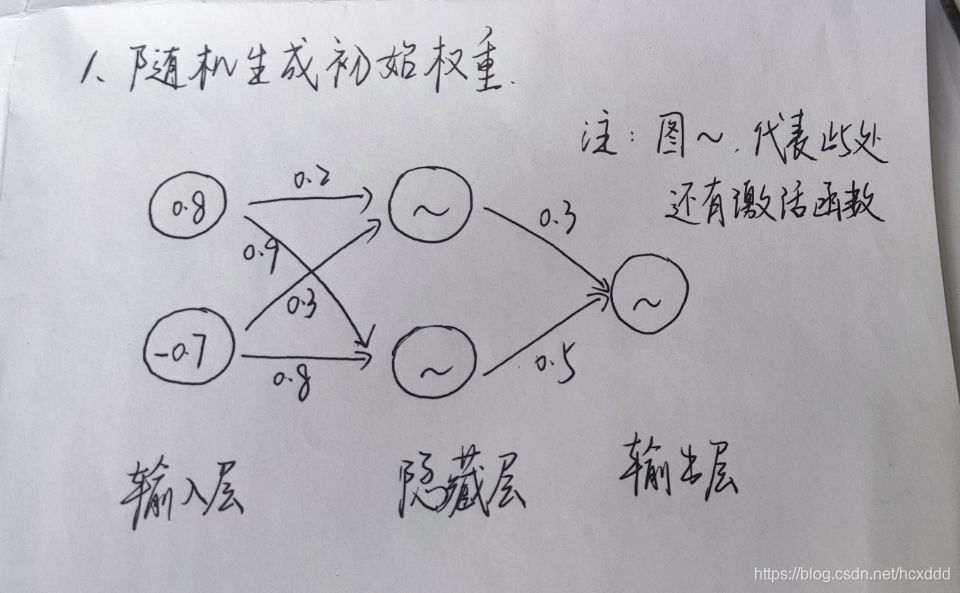 1、随机生成初始权重.
注：图～，代表此处
还有激活函数
0.8
0.2
～
0.9
0.3
0.3
～
-0.7
0.8
～
0.5
输入层
隐藏层
输出层
https://blog.csdn.net/hcxddd